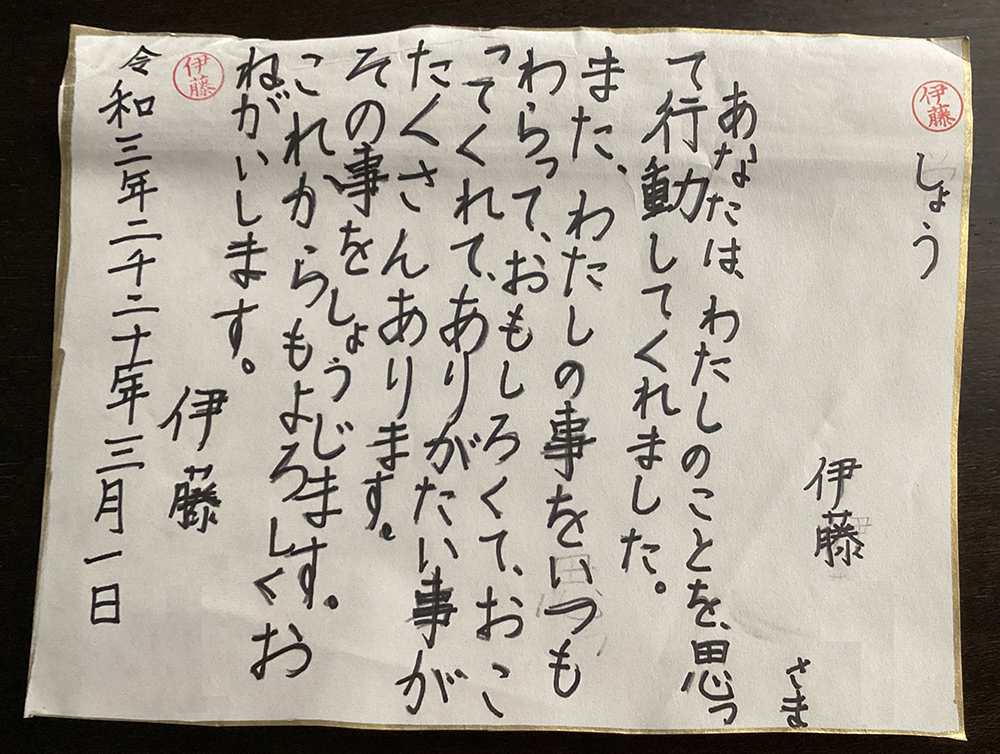 伊藤
しょう
伊藤
さま
あなたは、わたしのことを、思っ
て行動してくれました。
また、わたしの事をいつも
わらって、おもしろくて、おこ
ってくれて、ありがたい事が
たくさんあります。
その事をしょうじます。
これからもよろしくお
ねがいします。
伊藤
伊藤
令和三年二千二十一年三月一日